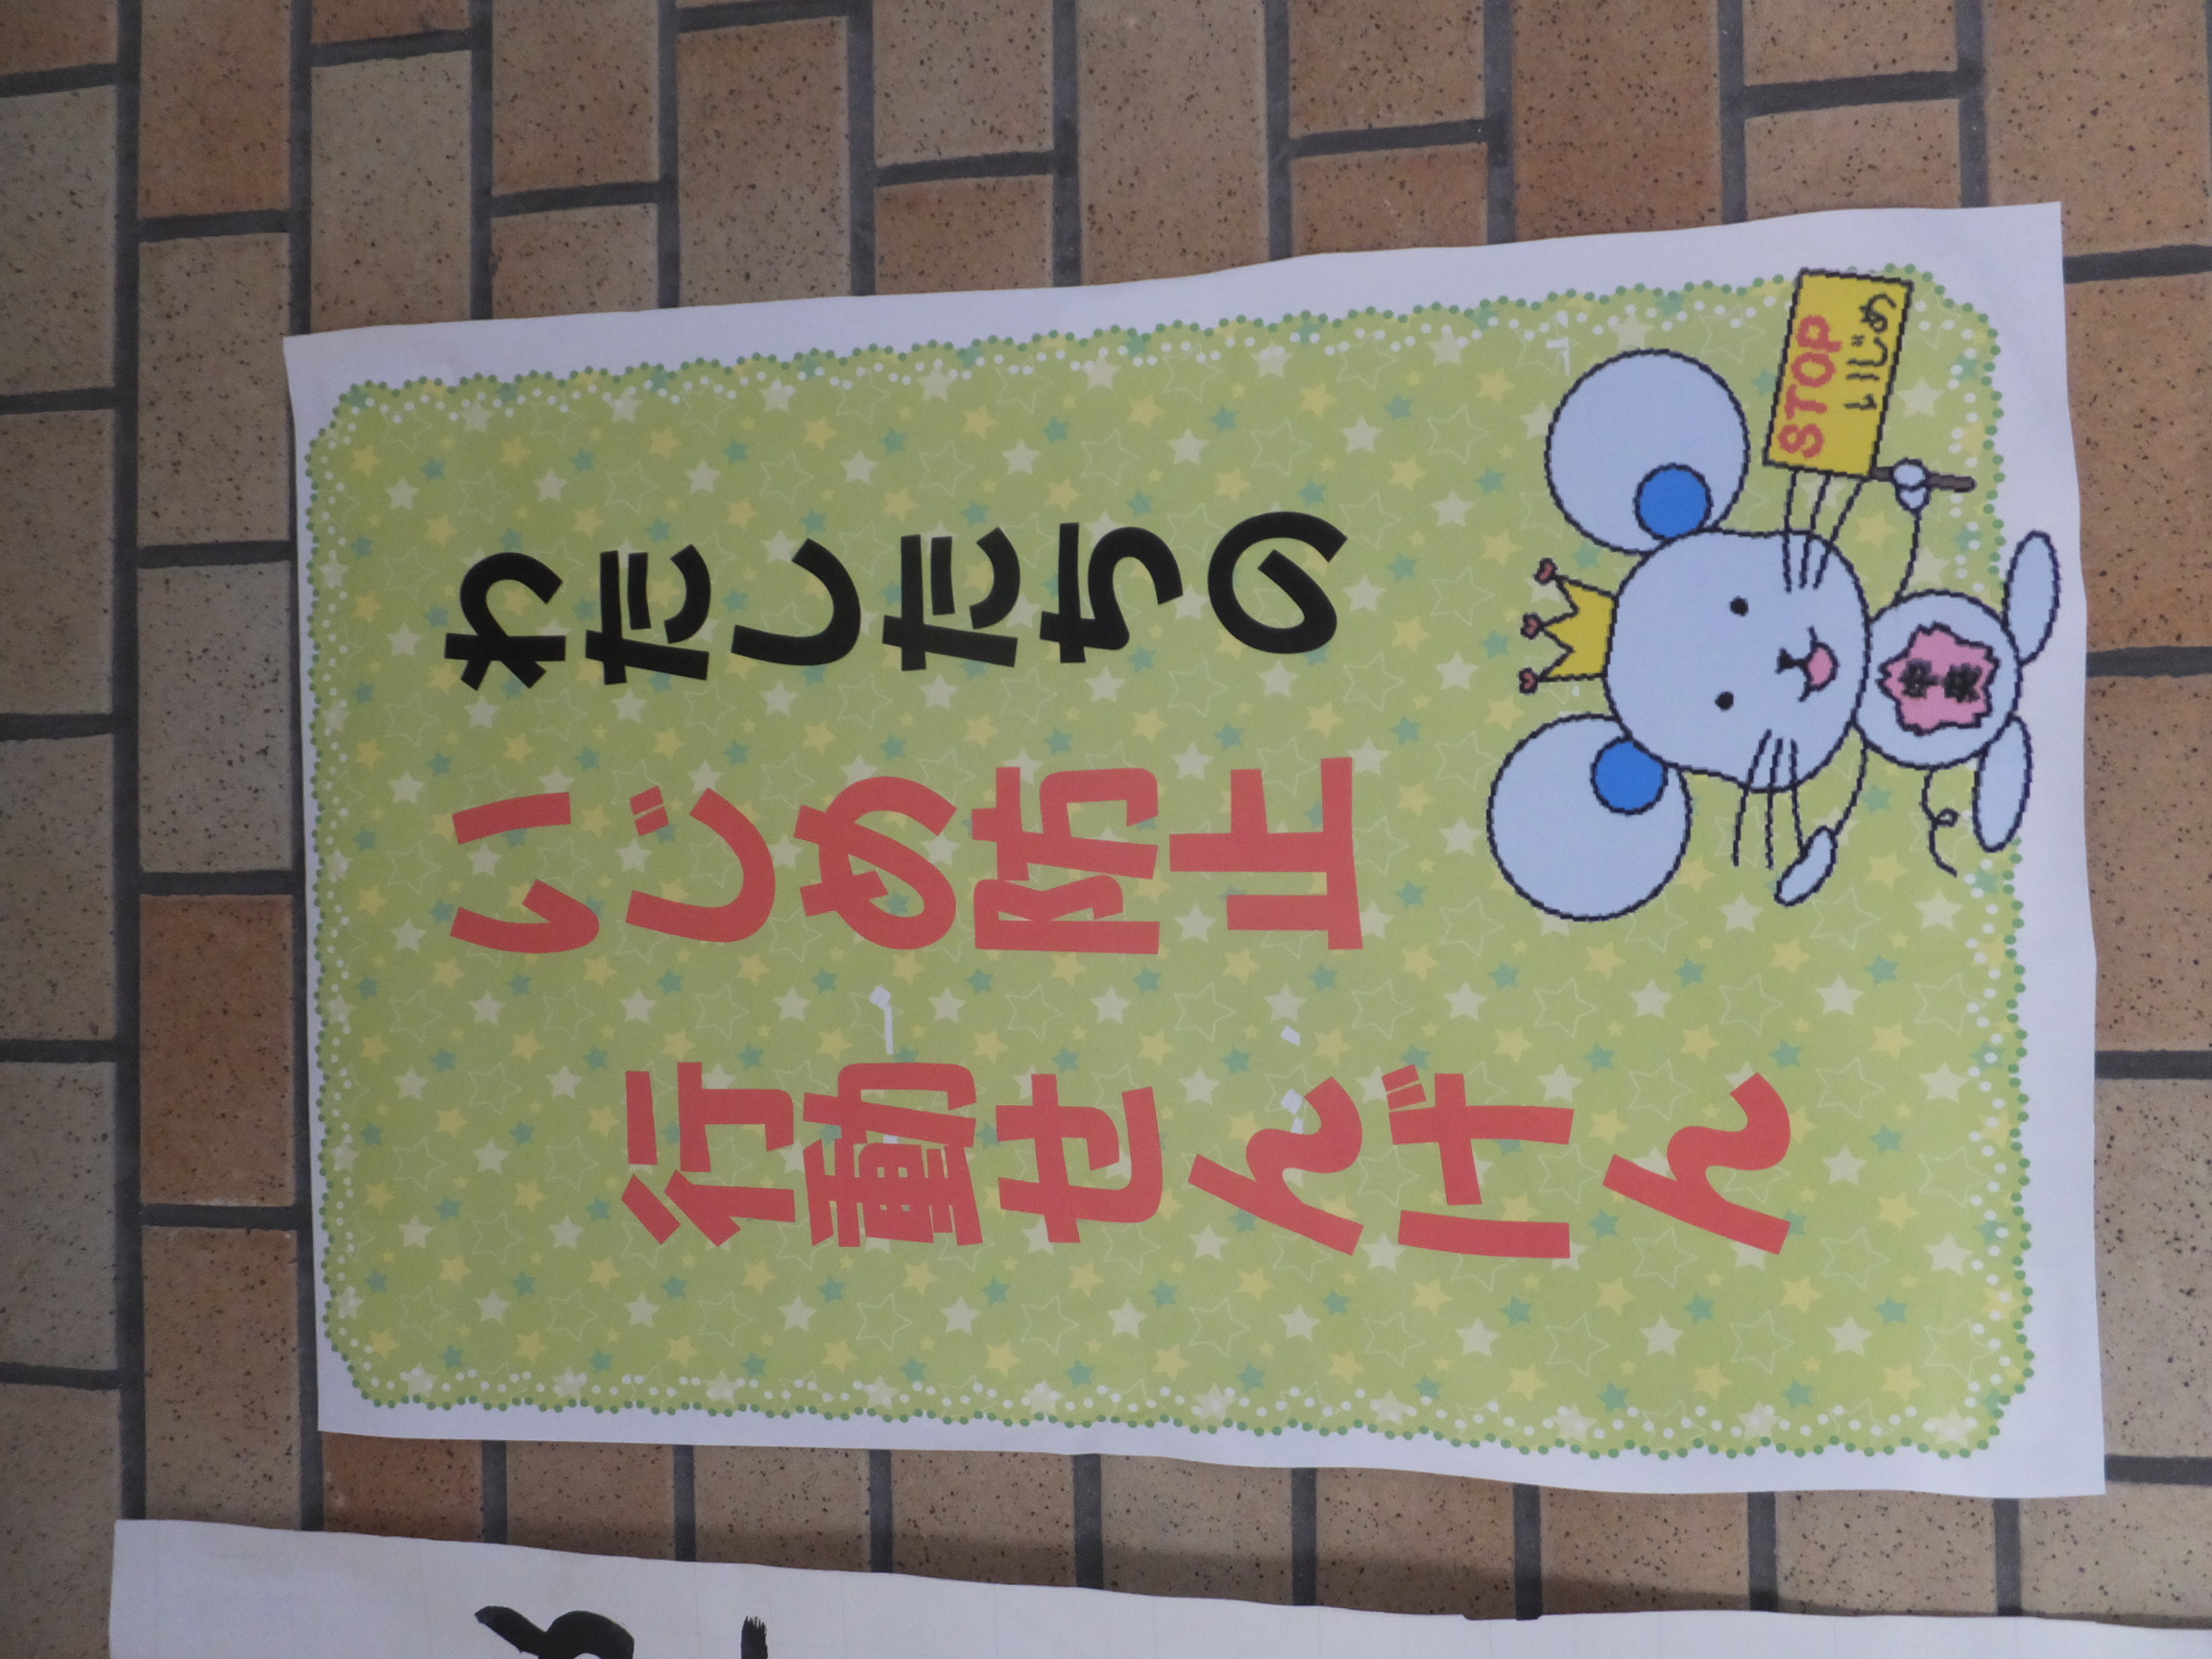 わたしたちの
いじめ防止
行動せんげん
STOP
いじめ
中央